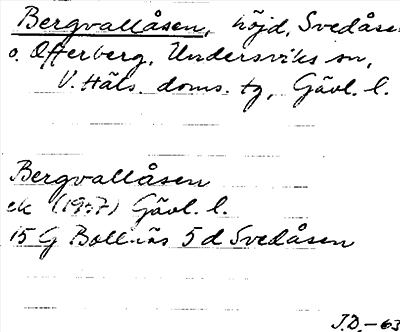 Bergvallåsen, höjd, Svedåsen
o. Offerberg, Undersviks sn,
V. Häls. doms. tg, Gävl. l.
Bergvallåsen
ek (1957) Gävl. l.
15 G Bollnäs 5 d Svedåsen
J.D. -63